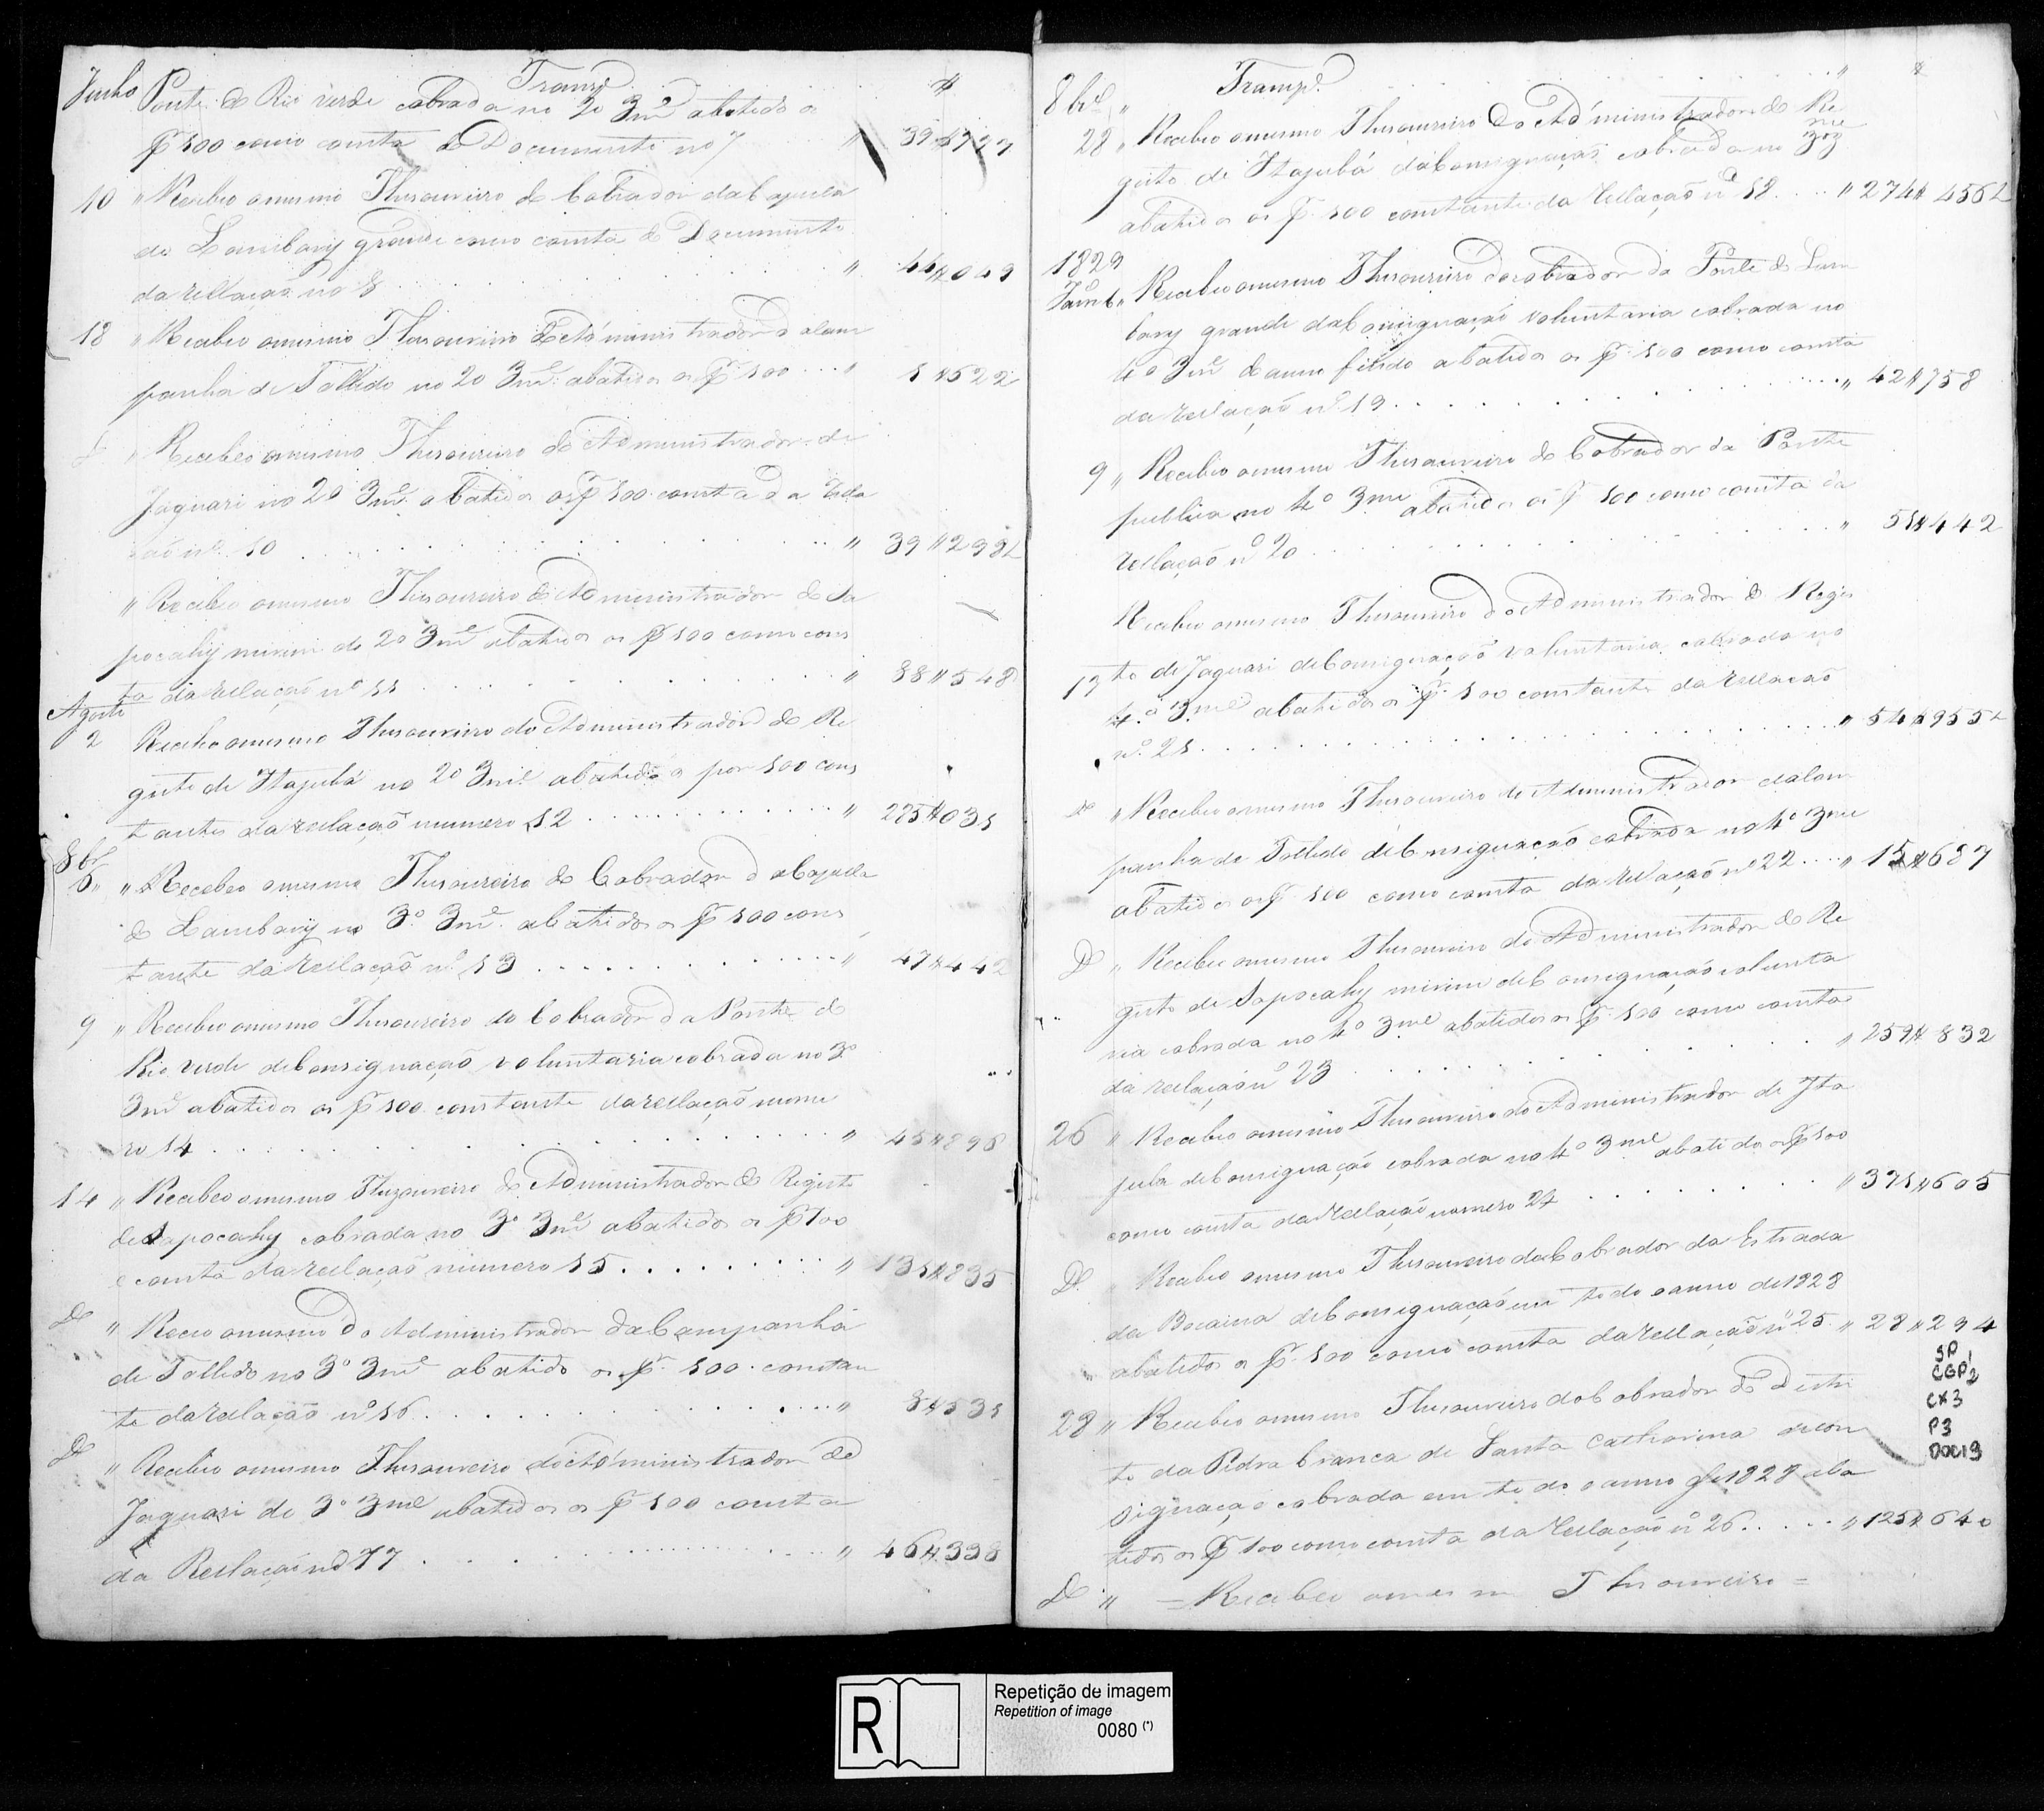 Transp.e $
Junho Ponte do Rio verde cobrada no 2o 3me abatido o
P 100 como consta do Documento no 7 " 39$4727
10 " Recebeo omesmo Thesoureiro do Cobrador da Capuda
do Lambary grande como consta do Documento
da rellação no 8 " 44$049
18 " Recebeo omesmo Thesoureiro do Administrador da Cam
panha de Tolledo no 2o 3me abatido os P 100 " 1$522
Do " Recebeo omesmo Thesoureiro do Administrador de
Jaguari no 2o 3me abatidos os P 100 consta da rela
ção no 10 " 39$298
" Recebeo omesmo Thesoureiro do Administrador do Sa
pocahy mirim do 2o 3me abatidos os P 100 como cons
ta da rellação no 11 " 88$548
Agosto
2 Recebeo omesmo Thesoureiro do Administrador do Re
gisto de Itajubá no 2o 3me abatido o por 100 cons
tantes da rellação numero 12 " 225$031
8br.
6 " " Recebeo omesmo Thesoureiro do Cobrador da Capuda
do Lambary no 3o 3me abatidos o P 100 cons
tante da rellação no 13 " 47$442
9 " Recebeo omesmo Thesoureiro do Cobrador da Ponte do
Rio verde de Consignação voluntaria cobrada no 3o
3me abatidos os P 100 constante da rellação nume
ro 14 " 45$896
14 " Recebeo omesmo Thezoureiro do Administrador do Registo
de Sapocahy cobrada no 3o 3me abatidos os P 100
e consta da rellação numero 15 " 131$835
Do " Receo omesmo do Administrador da Campanha
de Tolledo no 3o 3me abatido os P 100 constan
te da rellação no 16 " 8$531
Do " Recebeo omesmo Thesoureiro do Administrador de
Jaguari do 3o 3me abatidos os P 100 consta
da Rellação no 17 " 46$338
8bro " Transp.e " $
28 " Recebeo omesmo Thesoureiro do Administrador do Re
gisto de Itajubá da Consignação cobrada no 3o 3me
abatidos os P 100 constante da rellação no 18 " 274$456
1829
Janro 6 " Recebeo omesmo Thesoureiro do cobrador da Ponte do Lam
bary grande da Consignação voluntaria cobrada no
4o 3me do anno findo abatidos os P 100 como consta
da rellação no 19 " 42$758
9 " Recebeo omesmo Thesoureiro do Cobrador da Ponte
publica no 4o 3me abatidos os P 100 como consta da
rellação no 20 " 51$442
Recebeo omesmo Thesoureiro do Administrador do Regis
13 to de Jaguari de Consignação voluntaria cobrada no
4o 3me abatidos os P 100 constante da rellação
no 21 " 54$955
Do " Recebeo omesmo Thesoureiro do Administrador da Cam
panha do Tolledo de Consignação cobrada no 4o 3me
abatidos os P 100 como consta da rellação no 22 " 15$687
Do " Recebeo omesmo Thesoureiro do Administrador do Re
gisto de Sapocahy mirim de Consignação volunta
ria cobrada no 4o 3me abatidos os P 100 como consta
da rellação no 23 " 259$832
26 " Recebeo omesmo Thesoureiro do Administrador de Ita
juba de Consignação cobrada no 4o 3me abatidos os P 100
como consta da rellação numero 24 " 371$605
Do Recebeo omesmo Thesoureiro do Cobrador da Estrada
da Bocaina de Consignação em todo o anno de 1828
abatidos os P 100 como consta da rellação no 25 " 28$294
28 " Recebeo omesmo Thesoureiro do Cobrador do Destri
to da Pedra branca de Santa Catharina de con
signação cobrada em todo o anno de 1828 aba
tidos os P 100 como consta da rellação no 26 " 125$640
Do " = Recebeo omesmo Thesoureiro =
SP
CGP1
CX3
P3
DOC13
R
Repetição de imagem
Repetition of image
0080 (*)